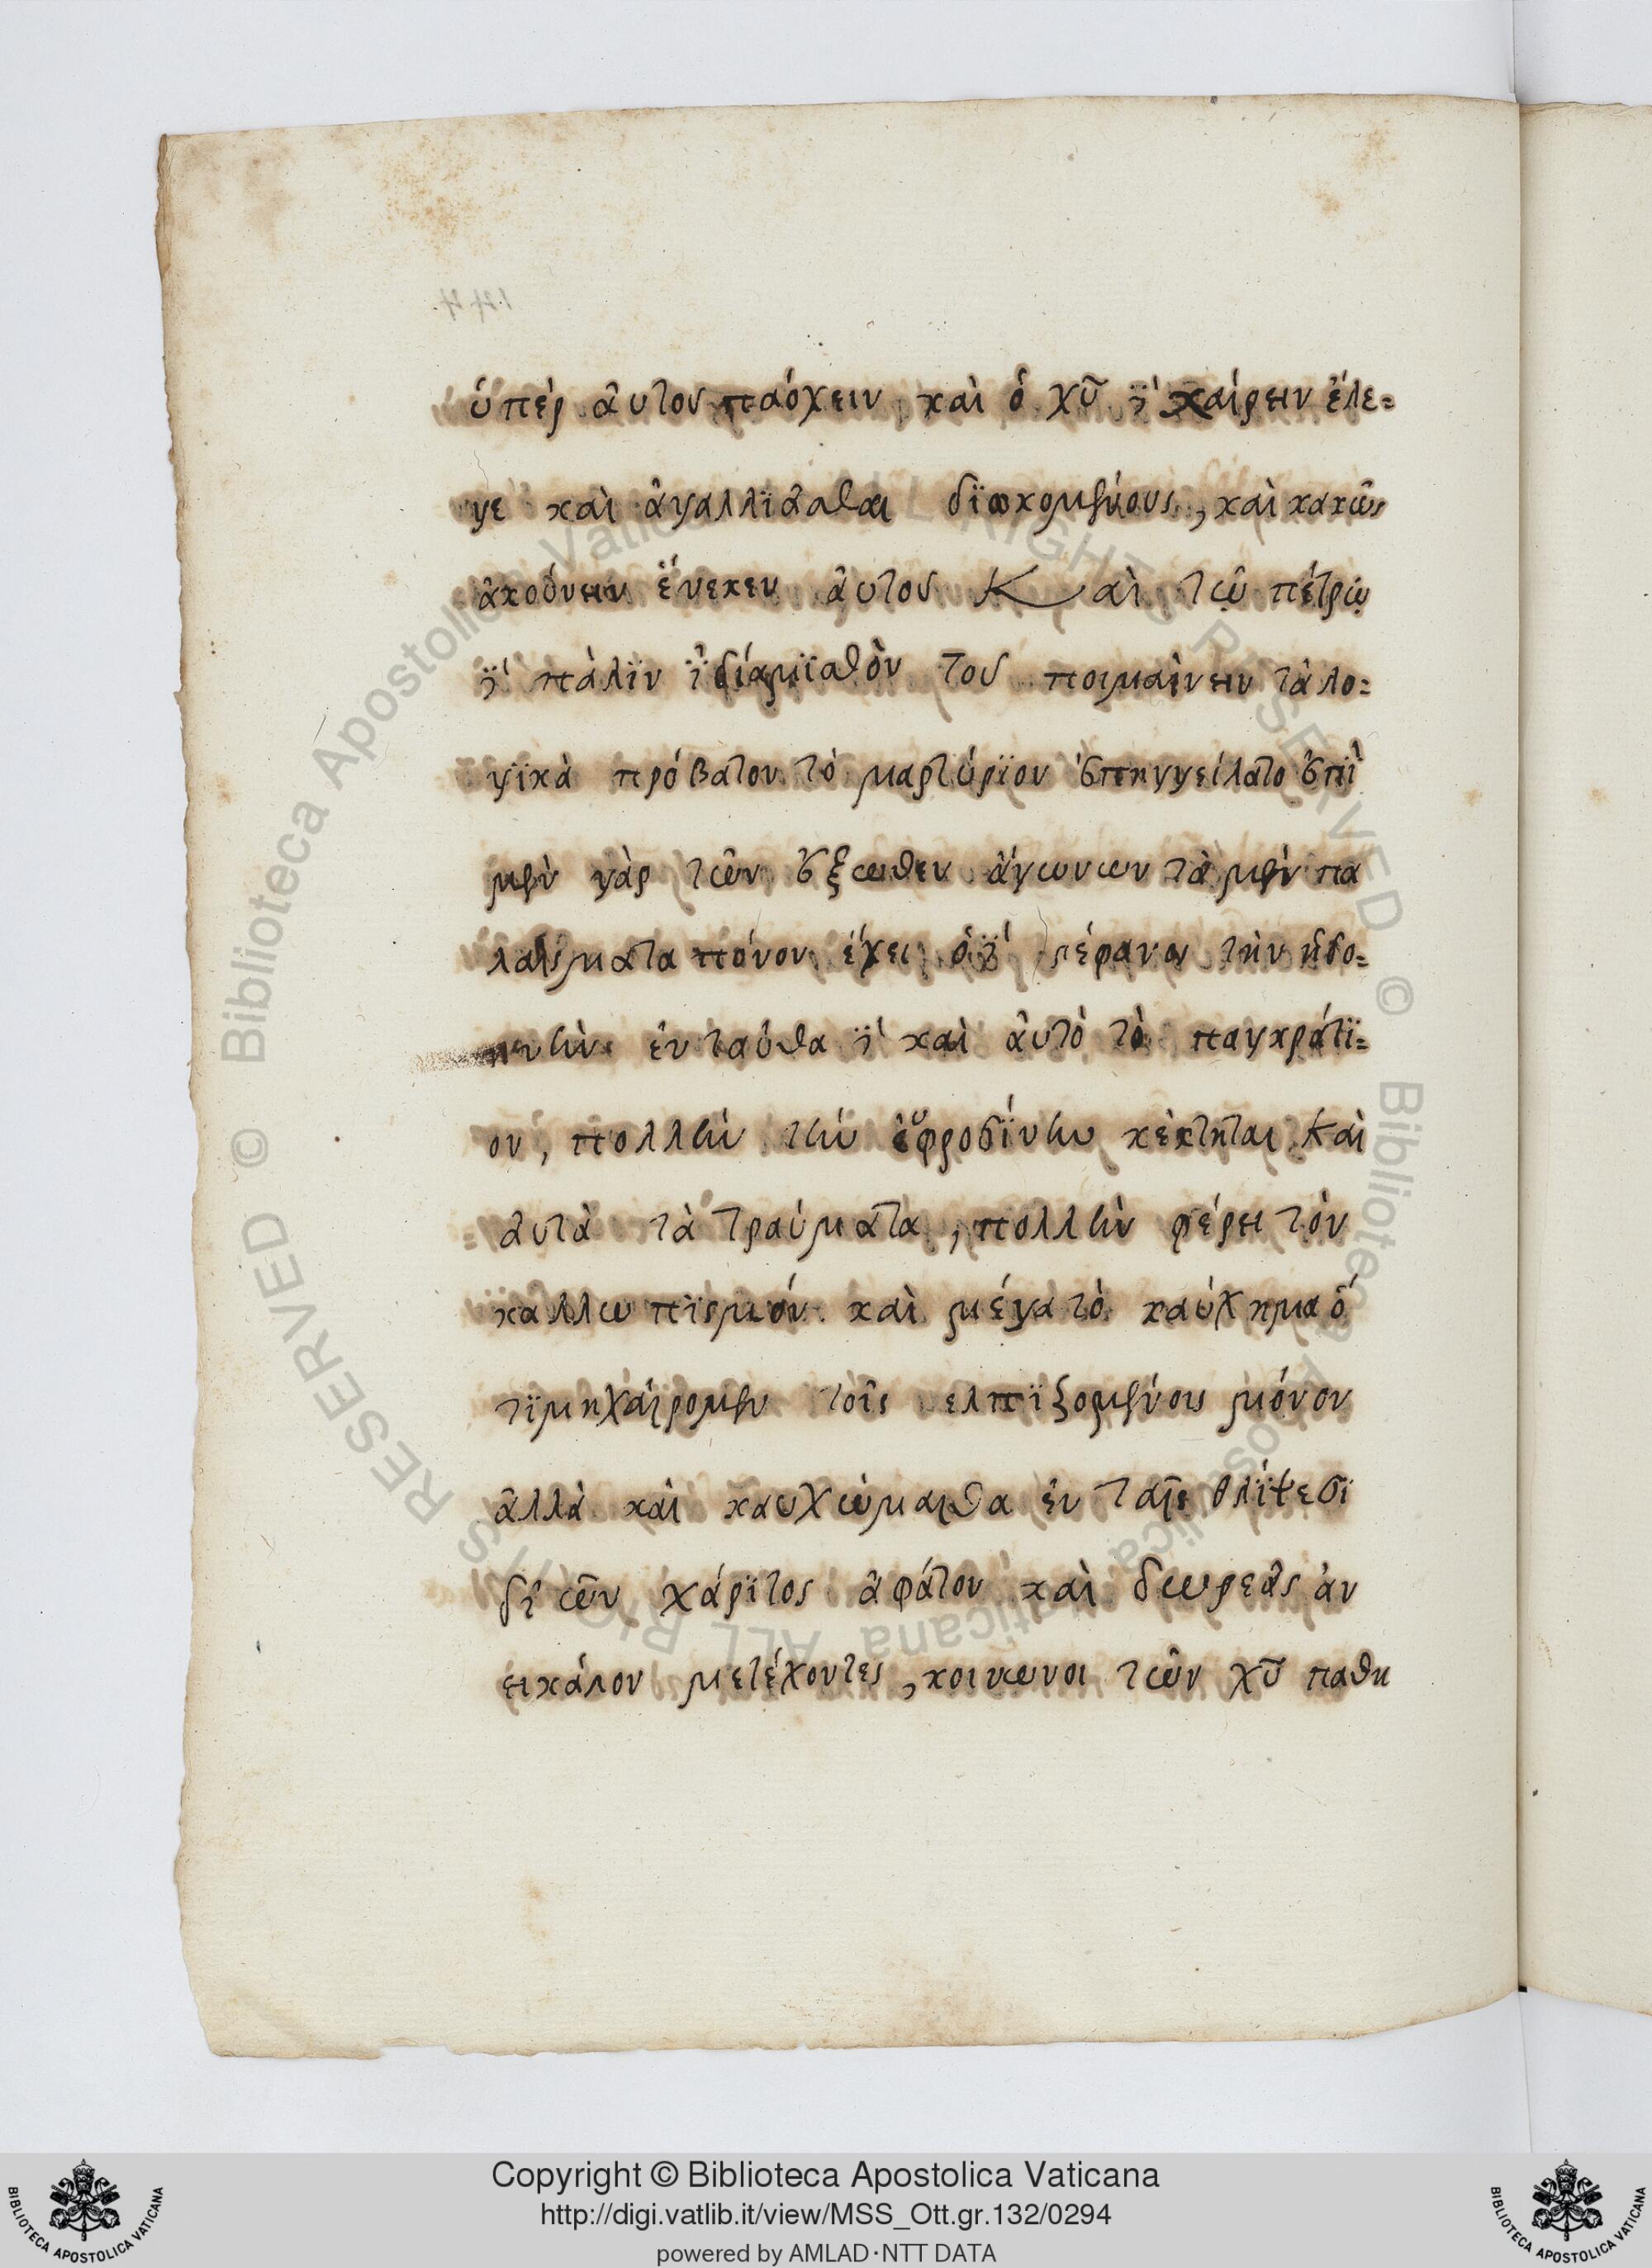 ὑπὲρ ἀυτοῦ πάσχειν καὶ ὁ χῦ δὲ χαίρειν ἔλε=
γε καὶ ἀγαλλϊᾶσθαι δϊωκομένους, καὶ κακῶς
ἀκούειν ἕνεκεν ἀυτοῦ Καὶ τῷ πέτρῳ
δὲ πάλϊν τοῦ ποιμαίνειν τὰ λο=
γϊκὰ πρόβατον τὸ μαρτύρϊον ἐπηγγείλατο ἐπϊ
μὲν γὰρ τῶν ἔξωθεν ἀγωνων τὰ μὲν πα
λαίσματα πόνον ἔχει ὁ δὲ στέφανος τὴν ἡδο=
νὴν ἐνταύθα δὲ καὶ ἀυτὸ τὸ παγκράτϊ=
ον, πολλὴν τὴν ἐυφροσίνην κέκτηται καὶ
ἀυτὰ τὰ τραύματα, πολλὴν φέρει τὸν
καλλωπϊσμόν καὶ μέγα τὸ καύχημα ὅ
τϊ μη χαίρομεν τοῖς ελπϊζομένοις μόνον
ἀλλὰ καὶ καυχώμαιθα ἐν ταῖς θλίψεσϊ
δι ὧν χάρϊτος ἀφάτου καὶ δωρεᾶς ἀν
εικάλου μετέχοντες, κοινωνοι τῶν χῦ παθη
Copyright © Biblioteca Apostolica Vaticana
http://digi.vatlib.it/view/MSS_Ott.gr.132/0294
powered by AMLAD·NTT DATA